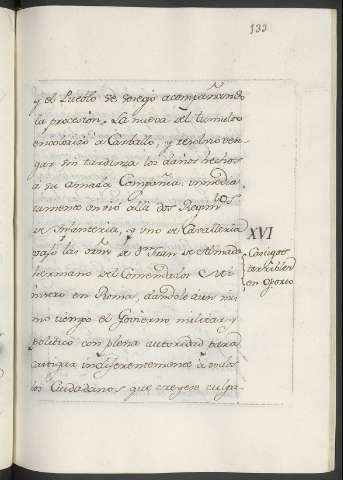 133
y el Pueblo se denegó acompañando
la procesion. La nueva del tumulto
encolerizó à Carballo, y resolvio ven-
gar sin tardanza los daños hechos
à su amada Compañia; inmedia-
tamente envió allà dos Regim.tos
de Infanteria, y uno de Cavalleria
vajo las orns. de Dn. Juan de Almada
hermano del Comendador Mi-
nistro en Roma, dandole aun mis-
mo tiempo el Govierno militar y
politico con plena autoridad para
castigar indiferentemente à todos
los Ciudadanos que creyese culpa-
XVI
Castigos
terribles
en Oporto